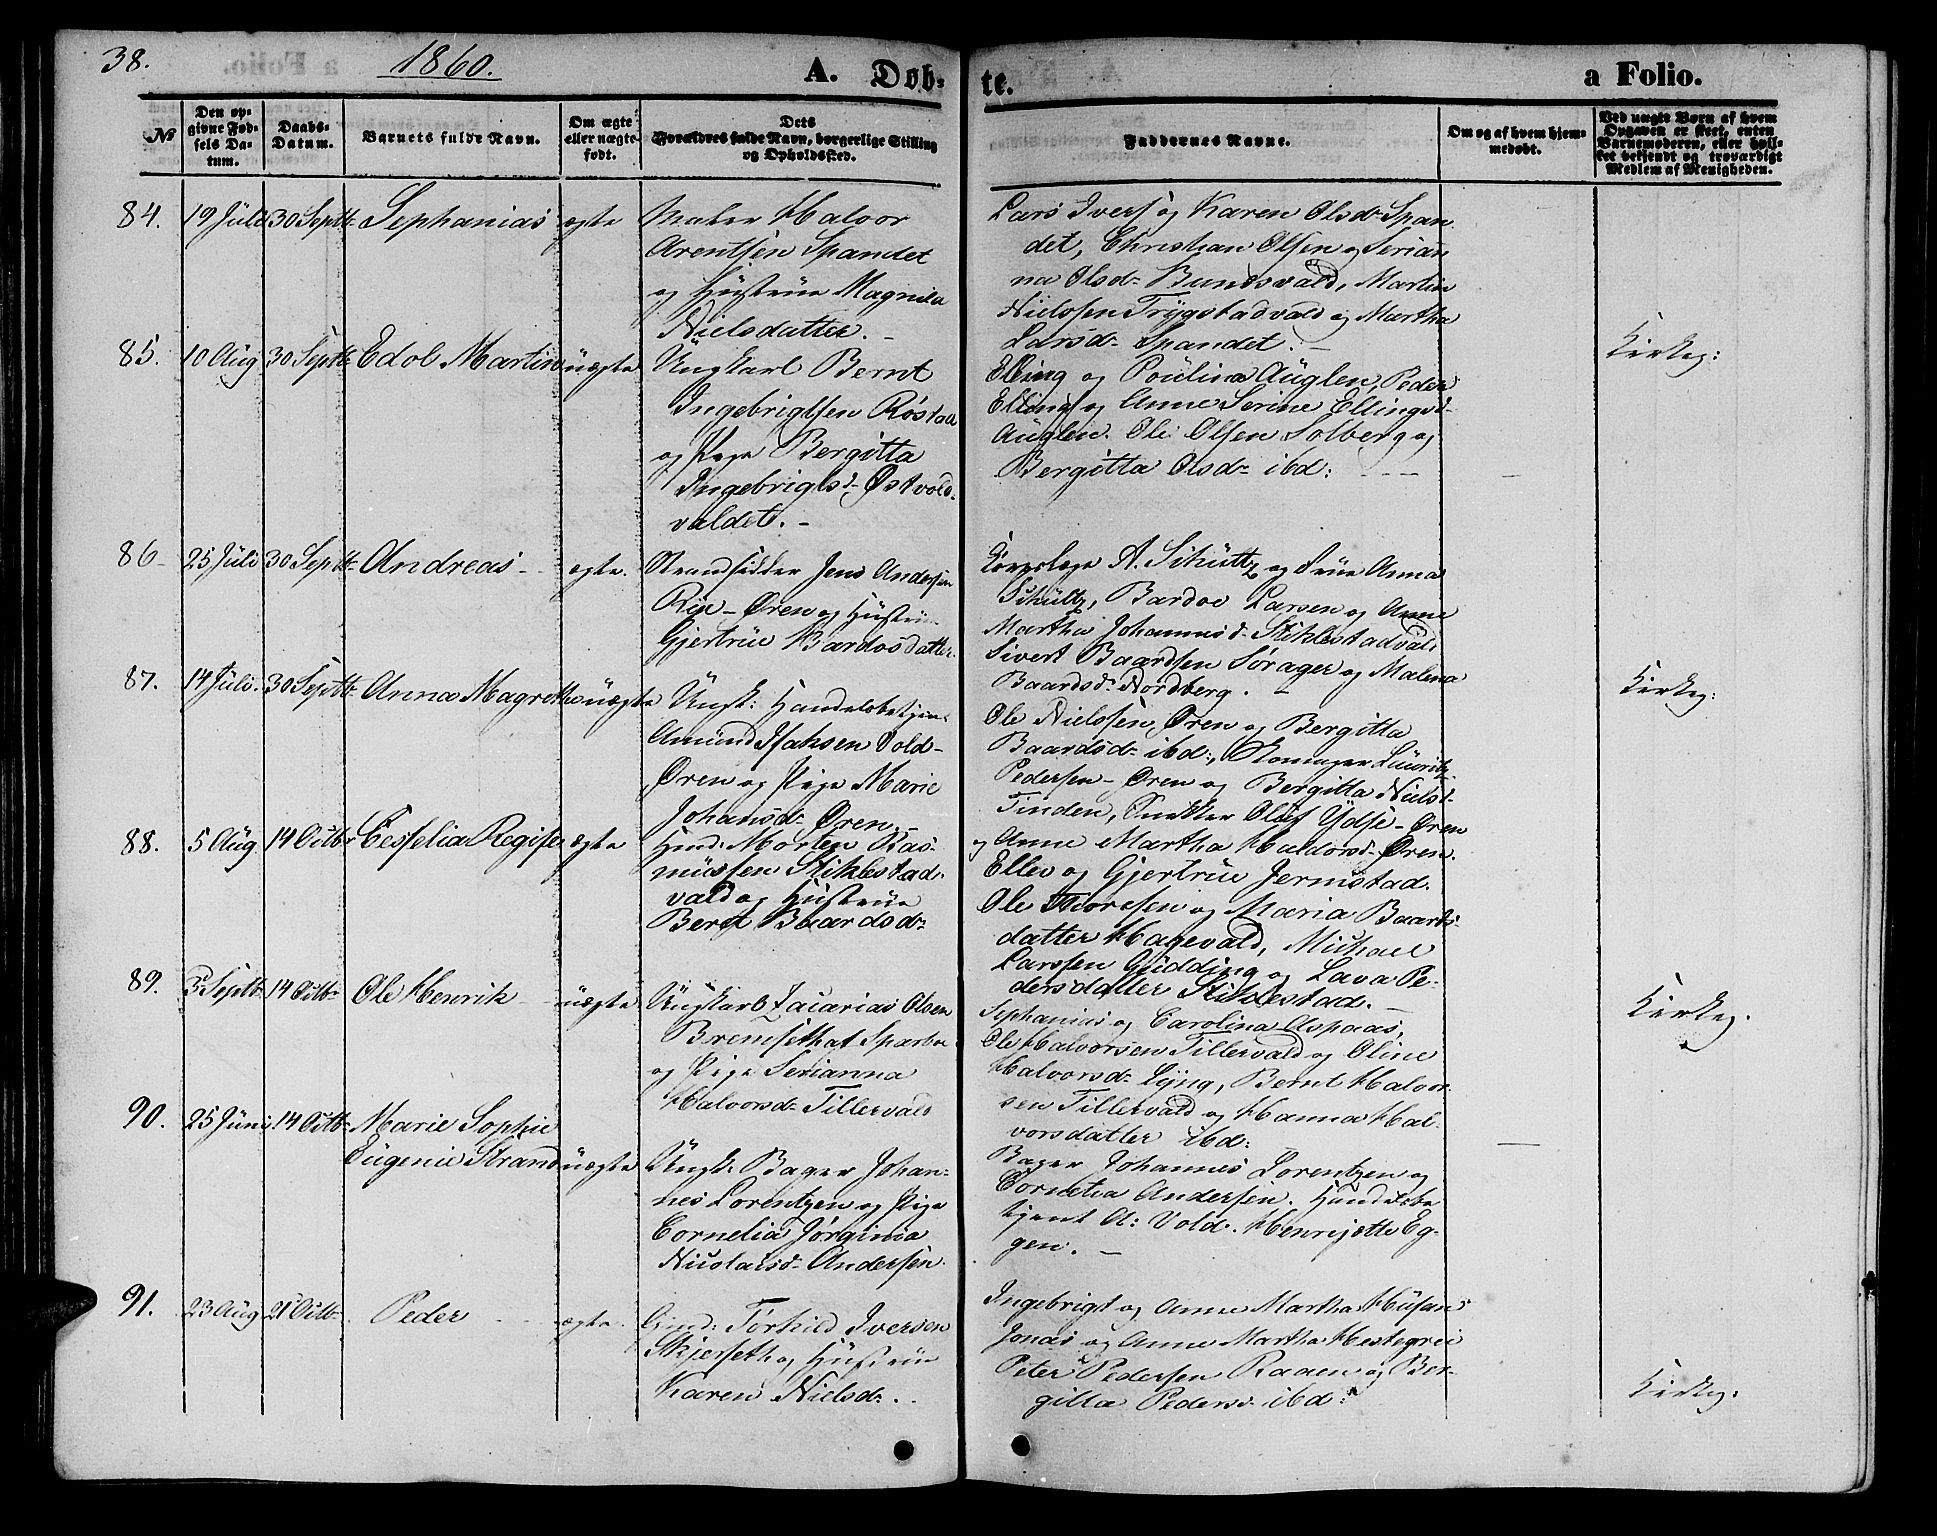 38.
1860.
A. Døb-
te.
a Folio.
No
Den op-
givne Fød-
sels Da-
tum.
Daabs-
Datum.
Barnets fulde Navn.
Om ægte
eller uægte
født.
Dets
Forældres fulde Navn, borgerlige Stilling
og Opholdssted.
Faddernes Navne.
Om og af hvem hjem-
medøbt.
Ved uægte Børn af hvem
Opgaven er skeet, enten
Barnemoderen, eller hvil-
ket bekjendt og troværdigt
Medlem af Menigheden.
84. 19 Juli 30 Septbr Sephanias ægte
Maler Halvor
Arentsen Spandet
og Hustrue Magnila
Nielsdatter. -
Lars Ivers og Karen Olsdr Span
det, Christian Olsen og Serian
na Olsdr Bundsvald, Martin
Nielssen Trygstadvald og Martha
Larsdr Spandet. -
85. 10 Aug 30 Septbr Edol Martin uægte
Ungkarl Bernt
Ingebrigtsen Røstad
og Pige Bergitta
Ingebrigtsd. Østvold-
valdet. -
Elling og Poulina Auglen, Peder
Ellings og Anne Serine Ellingsd-
Auglen. Ole Olsen Solberg og
Bergitta Olsdr ibd:
Kirkeg:
86- 25 Juli 30 Septbr Andreas - ægte.
Strandsidder Jens Andersen
Rix-Øren og Hustrue
Gjertrue Bardosdatter.
Korpslæge A. Schültz og Frue Anna
Schültz, Bardoe Larsen og Anne
Martha Johannesd. Stiklestadvald
Sivert Baardsen Sørager og Malena
Baardsdr Nordberg. -
87. 14 Juli. 30 Septbr Anna Magrethe uægte
Ungk: Handelsbetjen
Amund Isaksen Vold-
Øren og Pige Marie
Johansdr Øren. -
Ole Nielssen, Øren og Bergitta
Baardsdr ibd:, Skomager Lauritz
Pedersen - Øren og Bergitta Nielsd-
Tinden, Snekker Oluf Ydse - Øren
og Anne Martha Haldorsd. Øren.
Kirkeg:
88. 5 Aug. 14 Octbr Cesselia Regise ægte
Hmd: Morten Ras-
mussen Stiklestad-
vald og Hustrue
Beret Baardsdr
Ellev og Gjertrue Jermstad.
Ole Thorssen og Maria Baards-
datter Hagevald, Michael
Larssen Gudding og Lava Pe-
dersdatter Stiklestad. -
89. 3 Septbr 14 Octbr Ole Henrik - uægte
Ungkarl Zacarias Olsen
Bremseth af Sparbu
og Pige Serianna
Halvorsdr Tillervald
Sephanias og Carolina Aspaas,
Ole Halvorsen Tillervald og Oline
Halvorsdr Lyng, Bernt Halvor-
sen Tillervald og Hanna Hal-
vorsdatter ibd:
Kirkeg.
90. 25 Juni 14 Octbr Marie Sophie
Eugenie Strand uægte
Ungk: Bager Johan-
nes Lorentzen og Pige
Cornelia Jørginia
Nicolaisdr Andersen.
Bager Johannes Lorentzen og
Cornelia Andersen. Handelsbe
tjent A: Vold. Henrijette Eg-
gen. -
91. 23 Aug 21 Octbr Peder - ægte.
Gmd: Torkild Iversen
Skjerseth og Hustrue
Karen Nielsdr. -
Ingebrigt og Anne Martha Husan
Jonas og Anne Martha Hestegrei
Peter Pedersen Raaen og Ber-
gitta Pedersd. ibd:
Kirkeg: